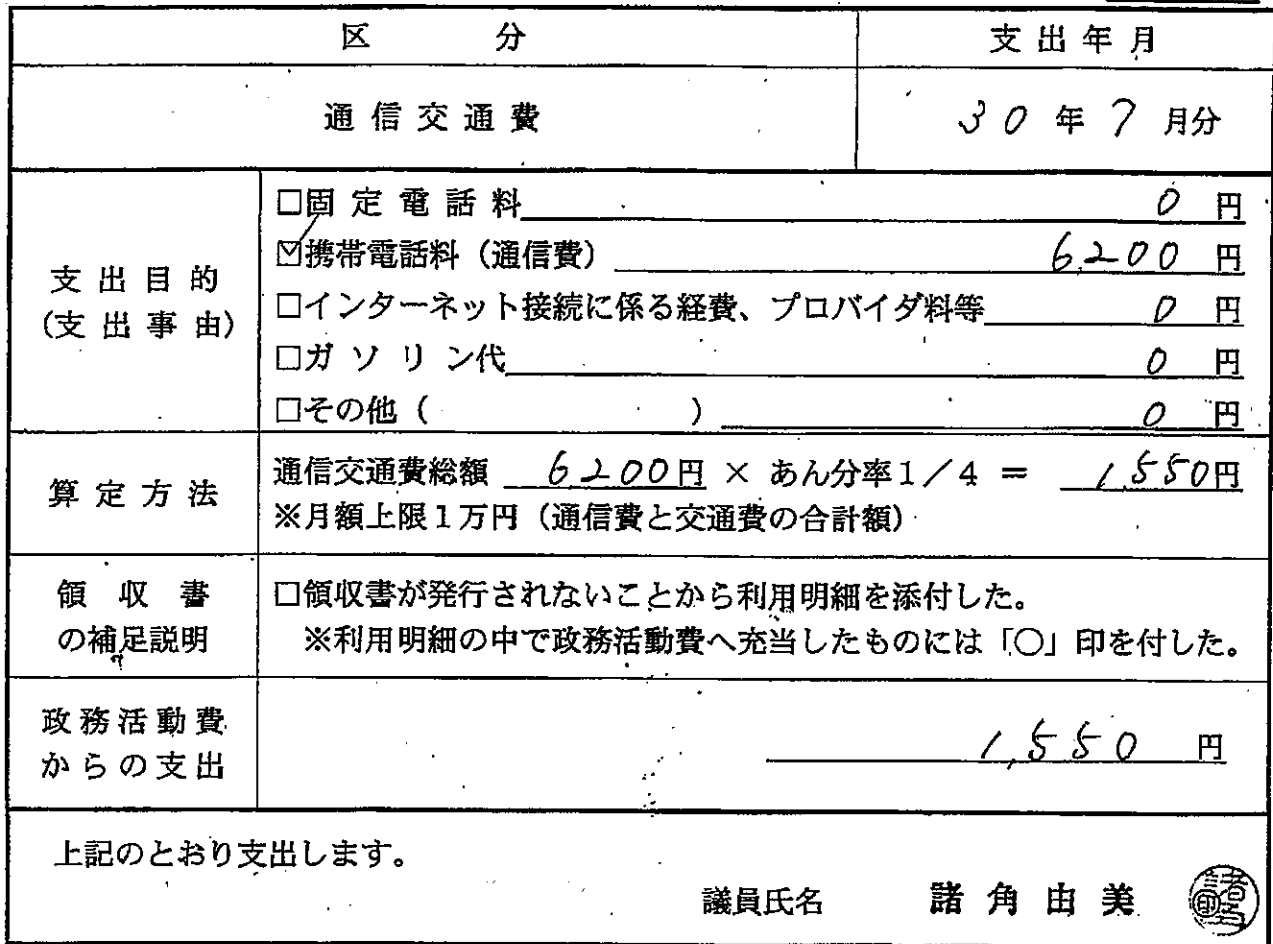 区分 支出年月
通信交通費 30年7月分
支出目的
(支出事由)
□固定電話料 0円
☑携帯電話料（通信費） 6,200円
□インターネット接続に係る経費、プロバイダ料等 0円
□ガソリン代 0円
□その他（ ） 0円
算定方法
通信交通費総額 6200円 × あん分率1／4 ＝ 1,550円
※月額上限1万円（通信費と交通費の合計額）
領収書
の補足説明
□領収書が発行されないことから利用明細を添付した。
※利用明細の中で政務活動費へ充当したものには「○」印を付した。
政務活動費
からの支出
1,550円
上記のとおり支出します。
議員氏名 諸角由美